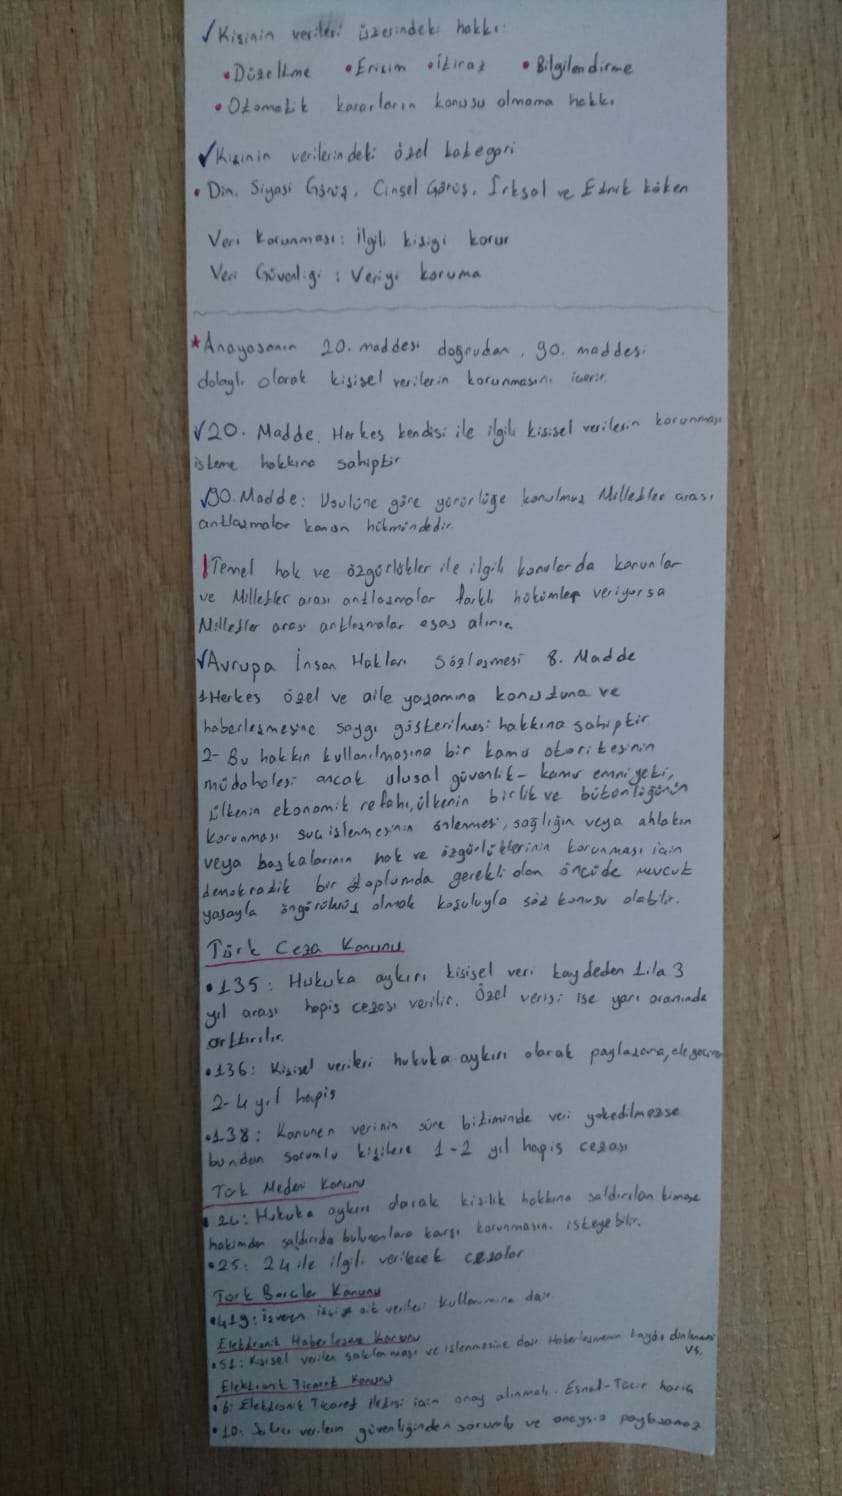 ✓Kişinin verileri üzerindeki hakkı:
• Düzeltme • Erişim • İtiraz • Bilgilendirme
• Otomatik kararların konusu olmama hakkı
✓Kişinin verilerindeki özel kategori
• Din, Siyasi Görüş, Cinsel Görüş, Irksal ve Etnik köken
Veri Korunması: ilgili kişiyi korur
Veri Güvenliği: Veriyi koruma
*Anayasanın 20. maddesi doğrudan, 90. maddesi
dolaylı olarak kişisel verilerin korunmasını içerir.
✓20. Madde, Herkes kendisi ile ilgili kişisel verilerin korunması
isteme hakkına sahiptir
✓90. Madde: Usulüne göre yürürlüğe konulmuş Milletler arası
antlaşmalar kanun hükmündedir.
!Temel hak ve özgürlükler ile ilgili konularda kanunlar
ve Milletler arası antlaşmalar farklı hükümler veriyorsa
Milletler arası antlaşmalar esas alınır.
✓Avrupa İnsan Hakları Sözleşmesi 8. Madde
1-Herkes özel ve aile yaşamına konutuna ve
haberleşmesine saygı gösterilmesi hakkına sahiptir
2- Bu hakkın kullanılmasına bir kamu otoritesinin
müdahalesi ancak ulusal güvenlik- kamu emniyeti,
ülkenin ekonomik refahı, ülkenin birlik ve bütünlüğünün
korunması suç işlenmesinin önlenmesi, sağlığın veya ahlakın
veya başkalarının hak ve özgürlüklerinin korunması için
demokratik bir toplumda gerekli olan ölçüde mevcut
yasayla öngörülmüş olmak koşuluyla söz konusu olabilir.
Türk Ceza Kanunu
• 135: Hukuka aykırı kişisel veri kaydeden 1 ila 3
yıl arası hapis cezası verilir. Özel verisi ise yarı oranında
arttırılır.
• 136: Kişisel verileri hukuka aykırı olarak paylaşana, ele geçirene
2-4 yıl hapis
• 138: Kanunen verinin süre bitiminde veri yokedilmezse
bundan sorumlu kişilere 1-2 yıl hapis cezası
Türk Medeni Kanunu
• 24: Hukuka aykırı olarak kişilik hakkına saldırılan kimse
hakimden saldırıda bulunanlara karşı korunmasını isteyebilir.
• 25: 24 ile ilgili verilecek cezalar
Türk Borçlar Kanunu
• 419: işveren işçiye ait verileri kullanımına dair
Elektronik Haberleşme Kanunu
• 51: Kişisel verilen saklanması ve işlenmesine dair Haberleşmenin kaydı dinlenmesi
vs.
Elektronik Ticaret Kanunu
• 6: Elektronik Ticaret iletisi için onay alınmalı. Esnaf-Tacir hariç
• 10: verilerin güvenliğinden sorumlu ve onaysız paylaşamaz